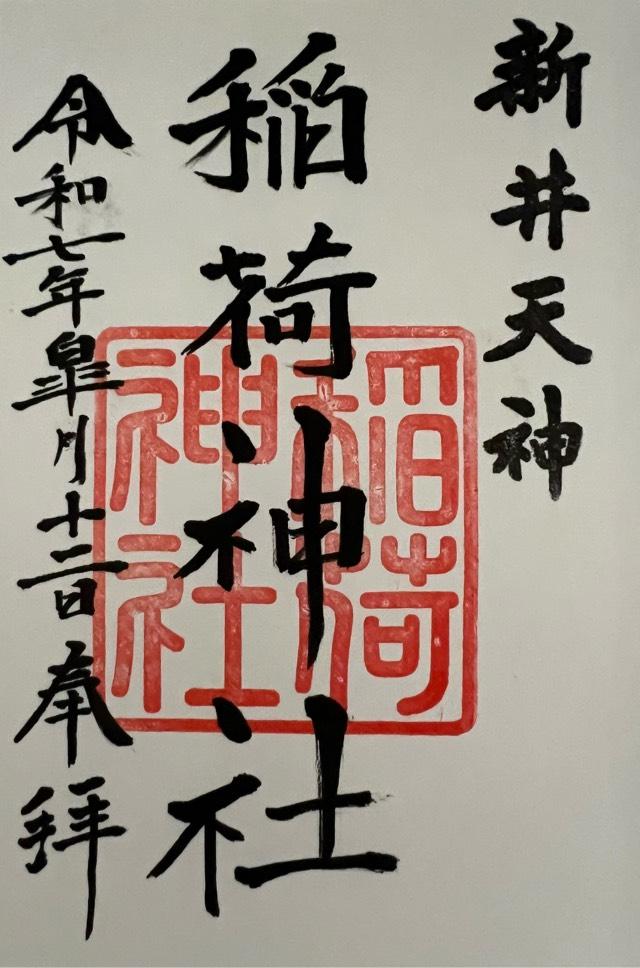 新井天神
稲荷神社
令和七年皐月十二日奉拝
稲荷
神社